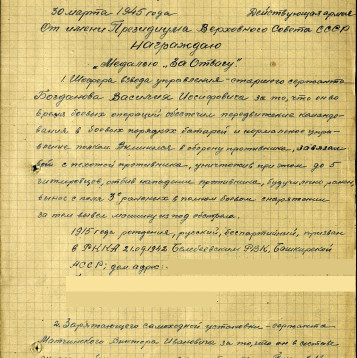 30 марта 1945 года Действующая армия
От имени Президиума Верховного Совета СССР
Награждаю
Медалью „За Отвагу"
1. Шофера взвода управления - старшего сержанта
Богданова Василия Иосифовича за то, что он во
время боевых операций обеспечил передвижение командо-
вания в боевых порядках батарей и нормальное упра-
вление полком. Вклинился в оборону противника, завязал
бой с пехотой противника, уничтожив при этом до 5
гитлеровцев, отбив нападение противника, будучи сам ранен,
вынес с поля 3х раненых в полном боевом снаряжении
за тем вывел машину из под обстрела.
1915 года рождения, русский, беспартийный, призван
в РККА 21.09.1942 Белебеевским РВК, Башкирской
АССР; дом. адрес:
2. Заряжающего самоходной установки - сержанта
Виктора Ивановича за то, что он в составе